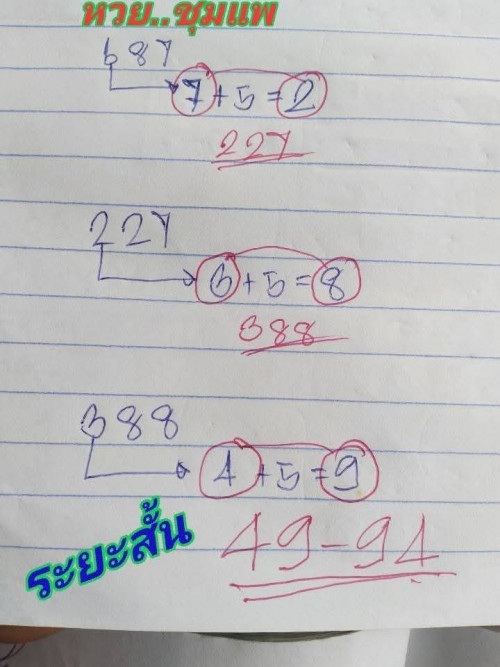 หวย..ชุมแพ
687
7+5=2
227
227
3+5=8
388
388
4+5=9
ระยะสั้น
49-94